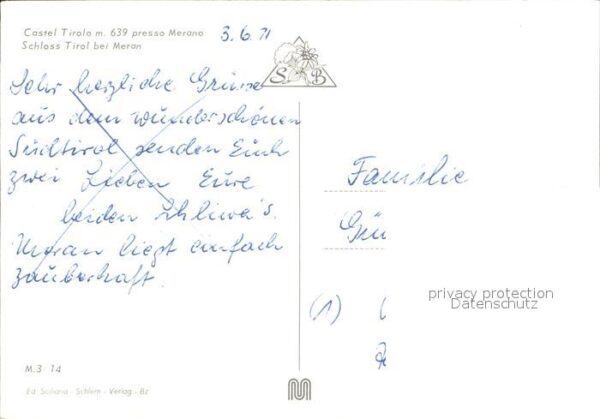 Castel Tirolo m. 639 presso Merano
Schloss Tirol bei Meran
3.6.71
S B
Sehr herzliche Grüsse
aus dem wunderschönen
Südtirol senden Euch
zwei Lieben Eure
beiden
Meran liegt einfach
zauberhaft.
M.3 14
Schlern - Verlag - Bz
Familie
(1)
privacy protection
Datenschutz